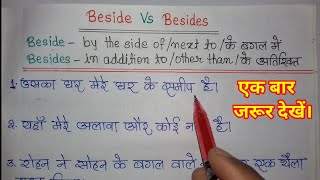 Beside Vs Besides
Beside - by the side of/next to/के बगल में
Besides - in addition to/other than/के अतिरिक्त
1. उसका घर मेरे घर के समीप है।
एक बार
जरूर देखें।
2. यहाँ मेरे अलावा और कोई है।
3. रोहन ने सोहन के बगल वाले एक थैला